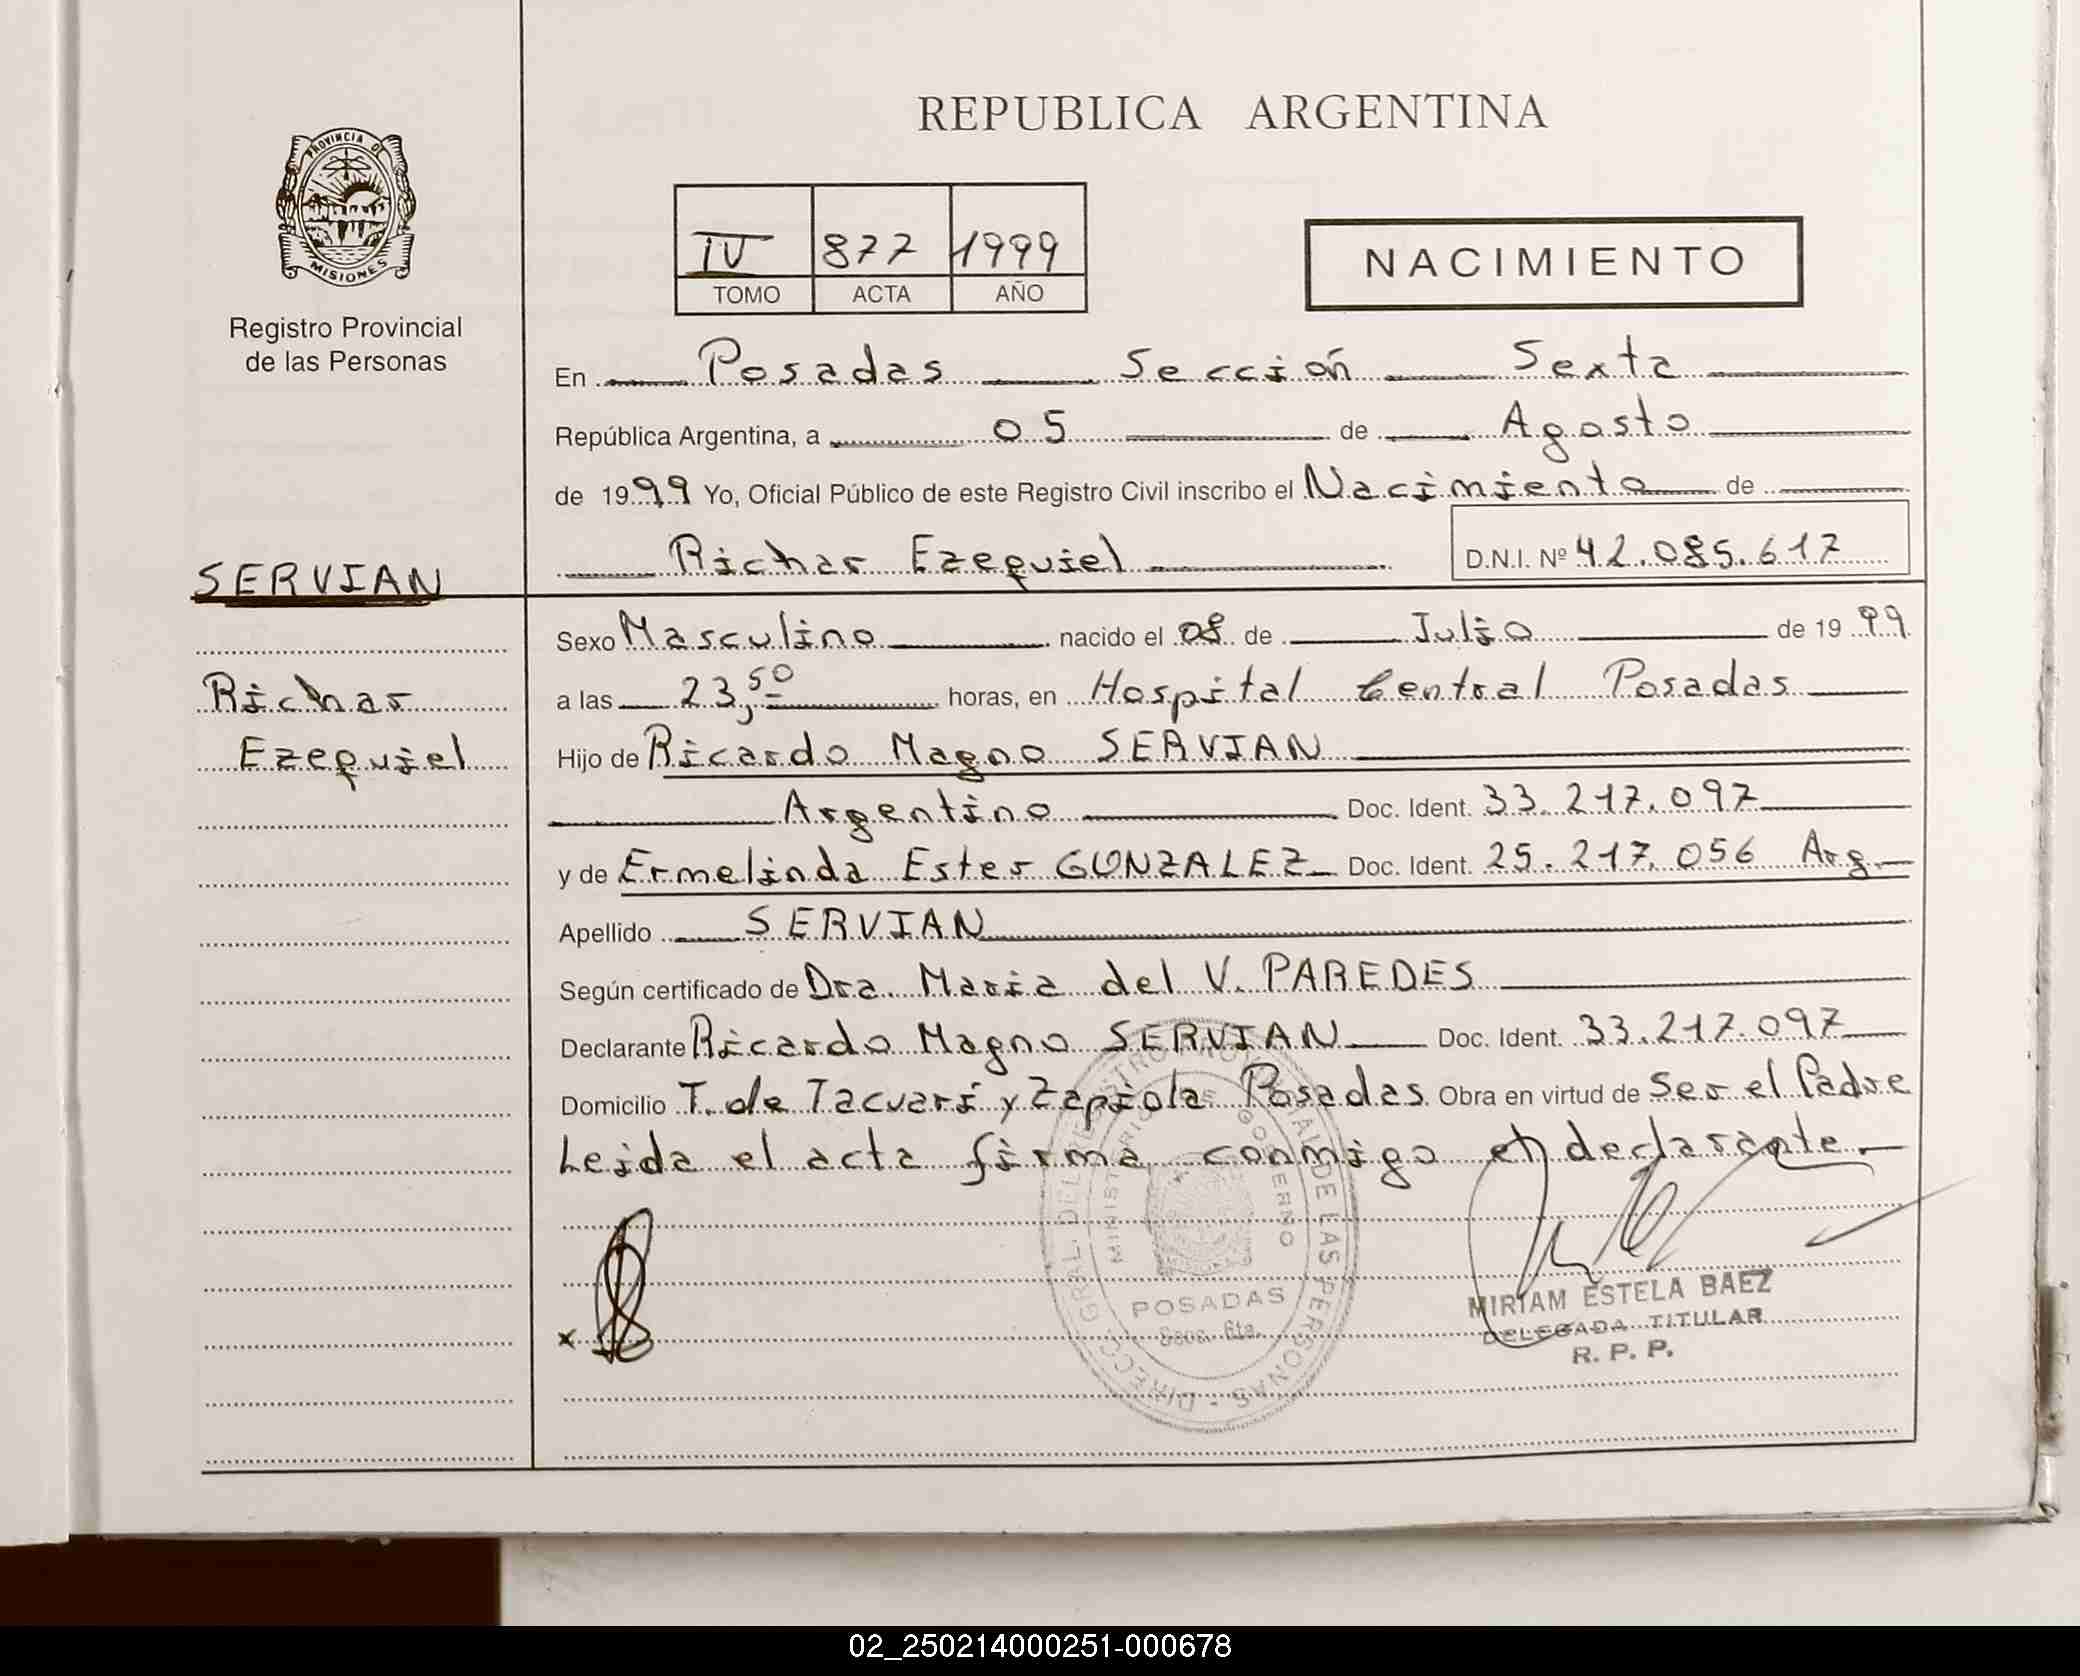 REPUBLICA ARGENTINA
PROVINCIA DE
MISIONES
Registro Provincial
de las Personas
IV 877 1999
TOMO ACTA AÑO
NACIMIENTO
En Posadas Sección Sexta
República Argentina, a 05 de Agosto
de 1999 Yo, Oficial Público de este Registro Civil inscribo el Nacimiento de
Richar Ezequiel D.N.I. Nº 42.085.617
SERVIAN
Richar
Ezequiel
Sexo Masculino nacido el 08 de Julio de 1999
a las 23,50 horas, en Hospital Central Posadas
Hijo de Ricardo Magno SERVIAN
Argentino Doc. Ident. 33.217.097
y de Ermelinda Ester GONZALEZ Doc. Ident. 25.217.056 Arg.
Apellido SERVIAN
Según certificado de Dra. Maria del V. PAREDES
Declarante Ricardo Magno SERVIAN Doc. Ident. 33.217.097
Domicilio T. de Tacuari y Zapiola Posadas Obra en virtud de Ser el Padre
Leida el acta firma conmigo el declarante
DIRECC. GRAL. DEL REGISTRO PROVINCIAL DE LAS PERSONAS
MINISTERIO DE GOBIERNO
POSADAS
Secc. 6ta.
x
MIRIAM ESTELA BAEZ
DELEGADA TITULAR
R. P. P.
02_250214000251-000678